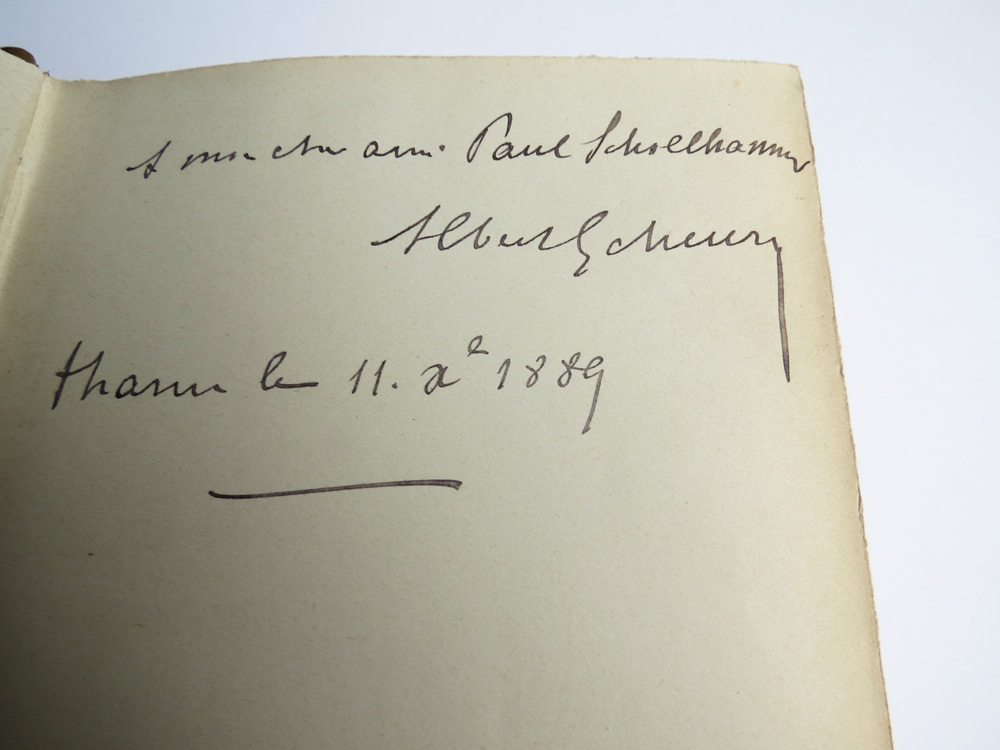 A mon cher ami Paul Schoellhammer
Albert Scheurer
thann le 11. Xe 1889